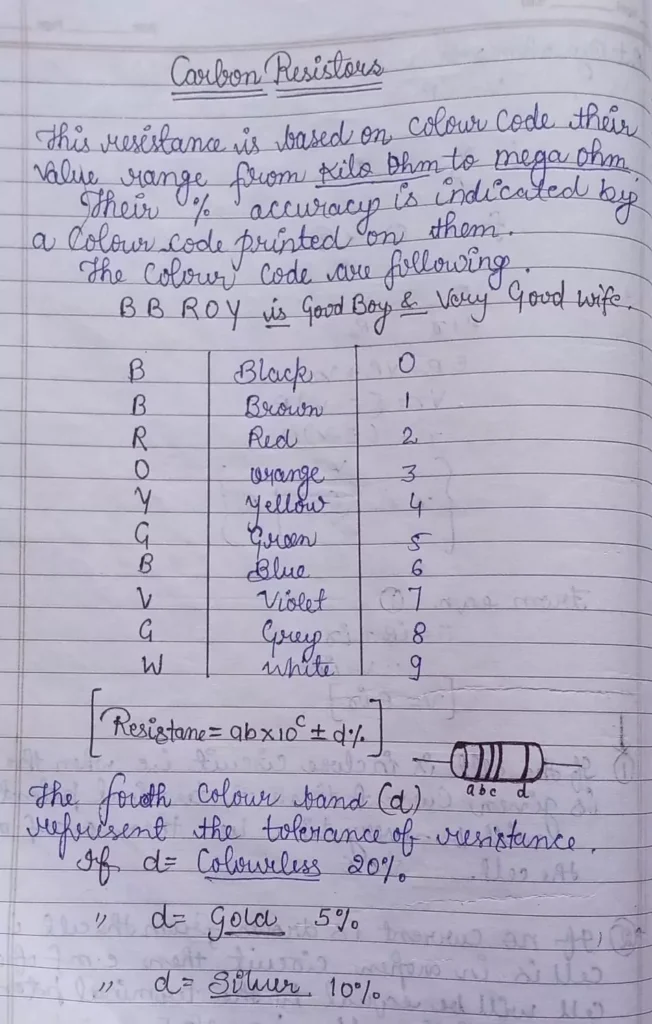 Carbon Resistors
This resistance is based on colour code their
value range from Kilo Ohm to mega ohm.
Their % accuracy is indicated by
a colour code printed on them.
The colour code are following.
B B ROY is Good Boy & Very Good wife.
B Black 0
B Brown 1
R Red 2
O orange 3
Y Yellow 4
G Green 5
B Blue 6
V Violet 7
G Grey 8
W White 9
[Resistane = ab×10^c ± d%]
a b c d
The fourth colour band (d)
represent the tolerance of resistance.
If d = Colourless 20%
" d = Gold 5%
" d = Silver 10%